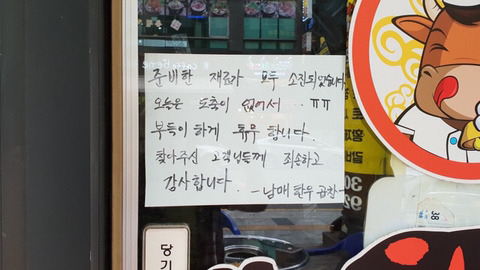 준비한 재료가 모두 소진되었습니다
오늘은 도축이 없어서 .. ㅠㅠ
부득이하게 휴유 합니다.
찾아주신 고객님들께 죄송하고
감사합니다. -남매 한우 곱창-
당기